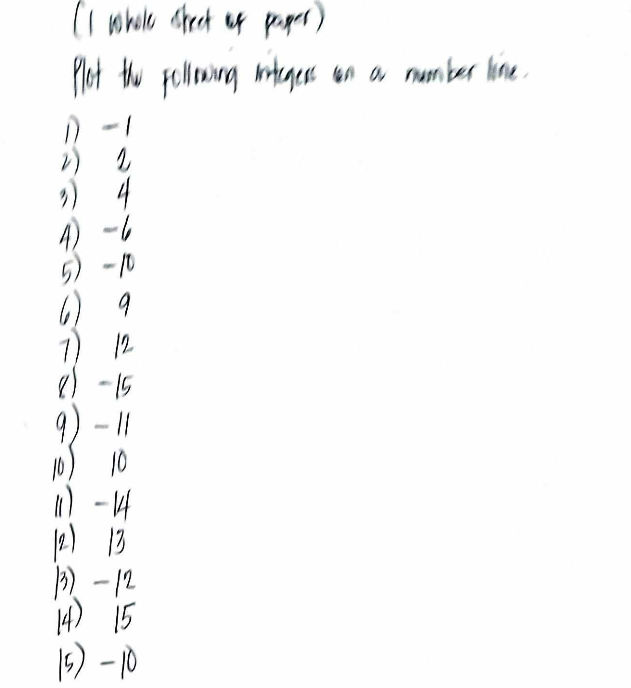 (1 whole sheet of paper)
Plot the following integers on a number line.
1) -1
2) 2
3) 4
4) -6
5) -10
6) 9
7) 12
8) -15
9) -11
10) 10
11) -14
12) 13
13) -12
14) 15
15) -10